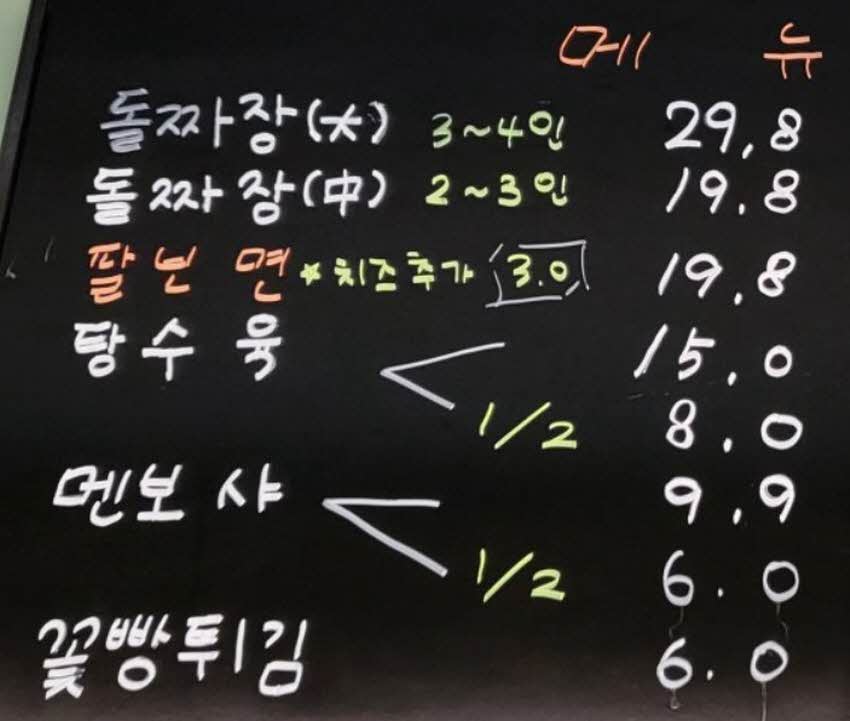 메뉴
돌짜장(大) 3~4인 29,8
돌짜장(中) 2~3인 19.8
팔보면 *치즈추가 3.0 19,8
탕수육 15.0
1/2 8.0
멘보샤 9.9
1/2 6.0
꽃빵튀김 6.0